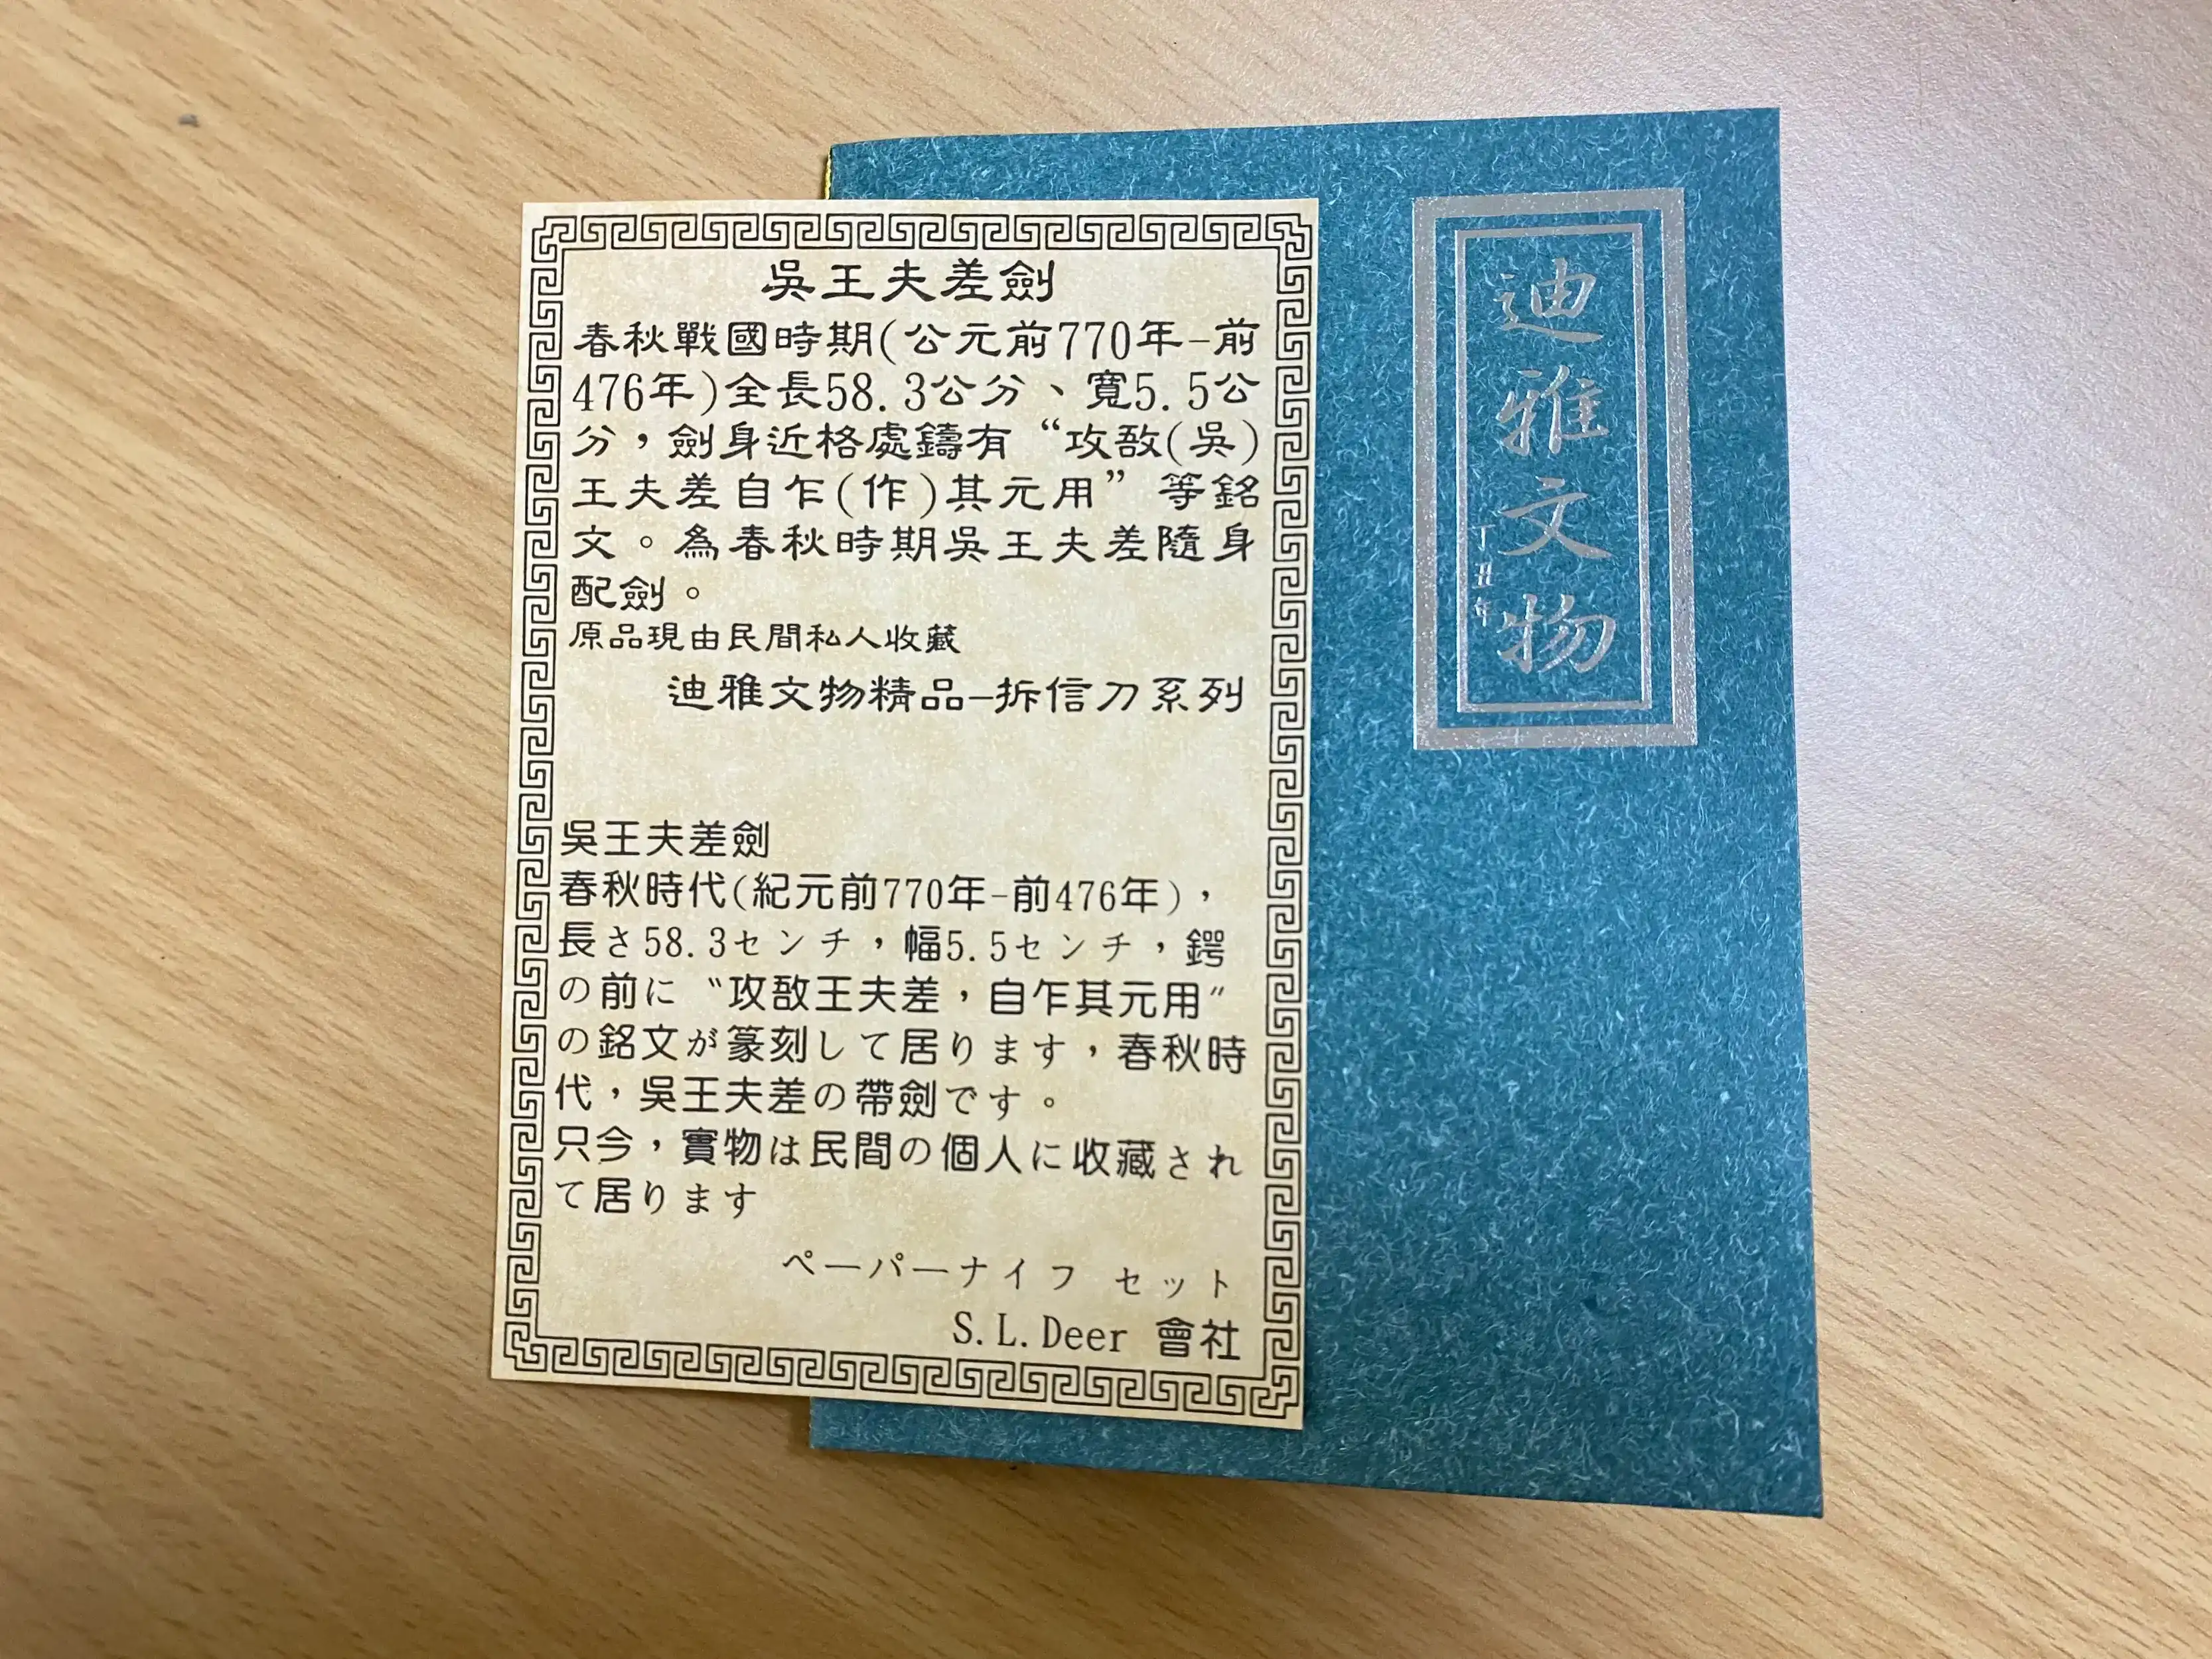 吳王夫差劍
春秋戰國時期(公元前770年-前
476年)全長58.3公分、寬5.5公
分，劍身近格處鑄有“攻敔(吳)
王夫差自乍(作)其元用”等銘
文。為春秋時期吳王夫差隨身
配劍。
原品現由民間私人收藏
迪雅文物精品-拆信刀系列
吳王夫差劍
春秋時代(紀元前770年-前476年)，
長さ58.3センチ，幅5.5センチ，鍔
の前に〝攻敔王夫差，自乍其元用〞
の銘文が篆刻して居ります，春秋時
代，吳王夫差の帶劍です。
只今，實物は民間の個人に收藏され
て居ります
ペーパーナイフ セット
S.L.Deer 會社
迪雅文物
丁丑年